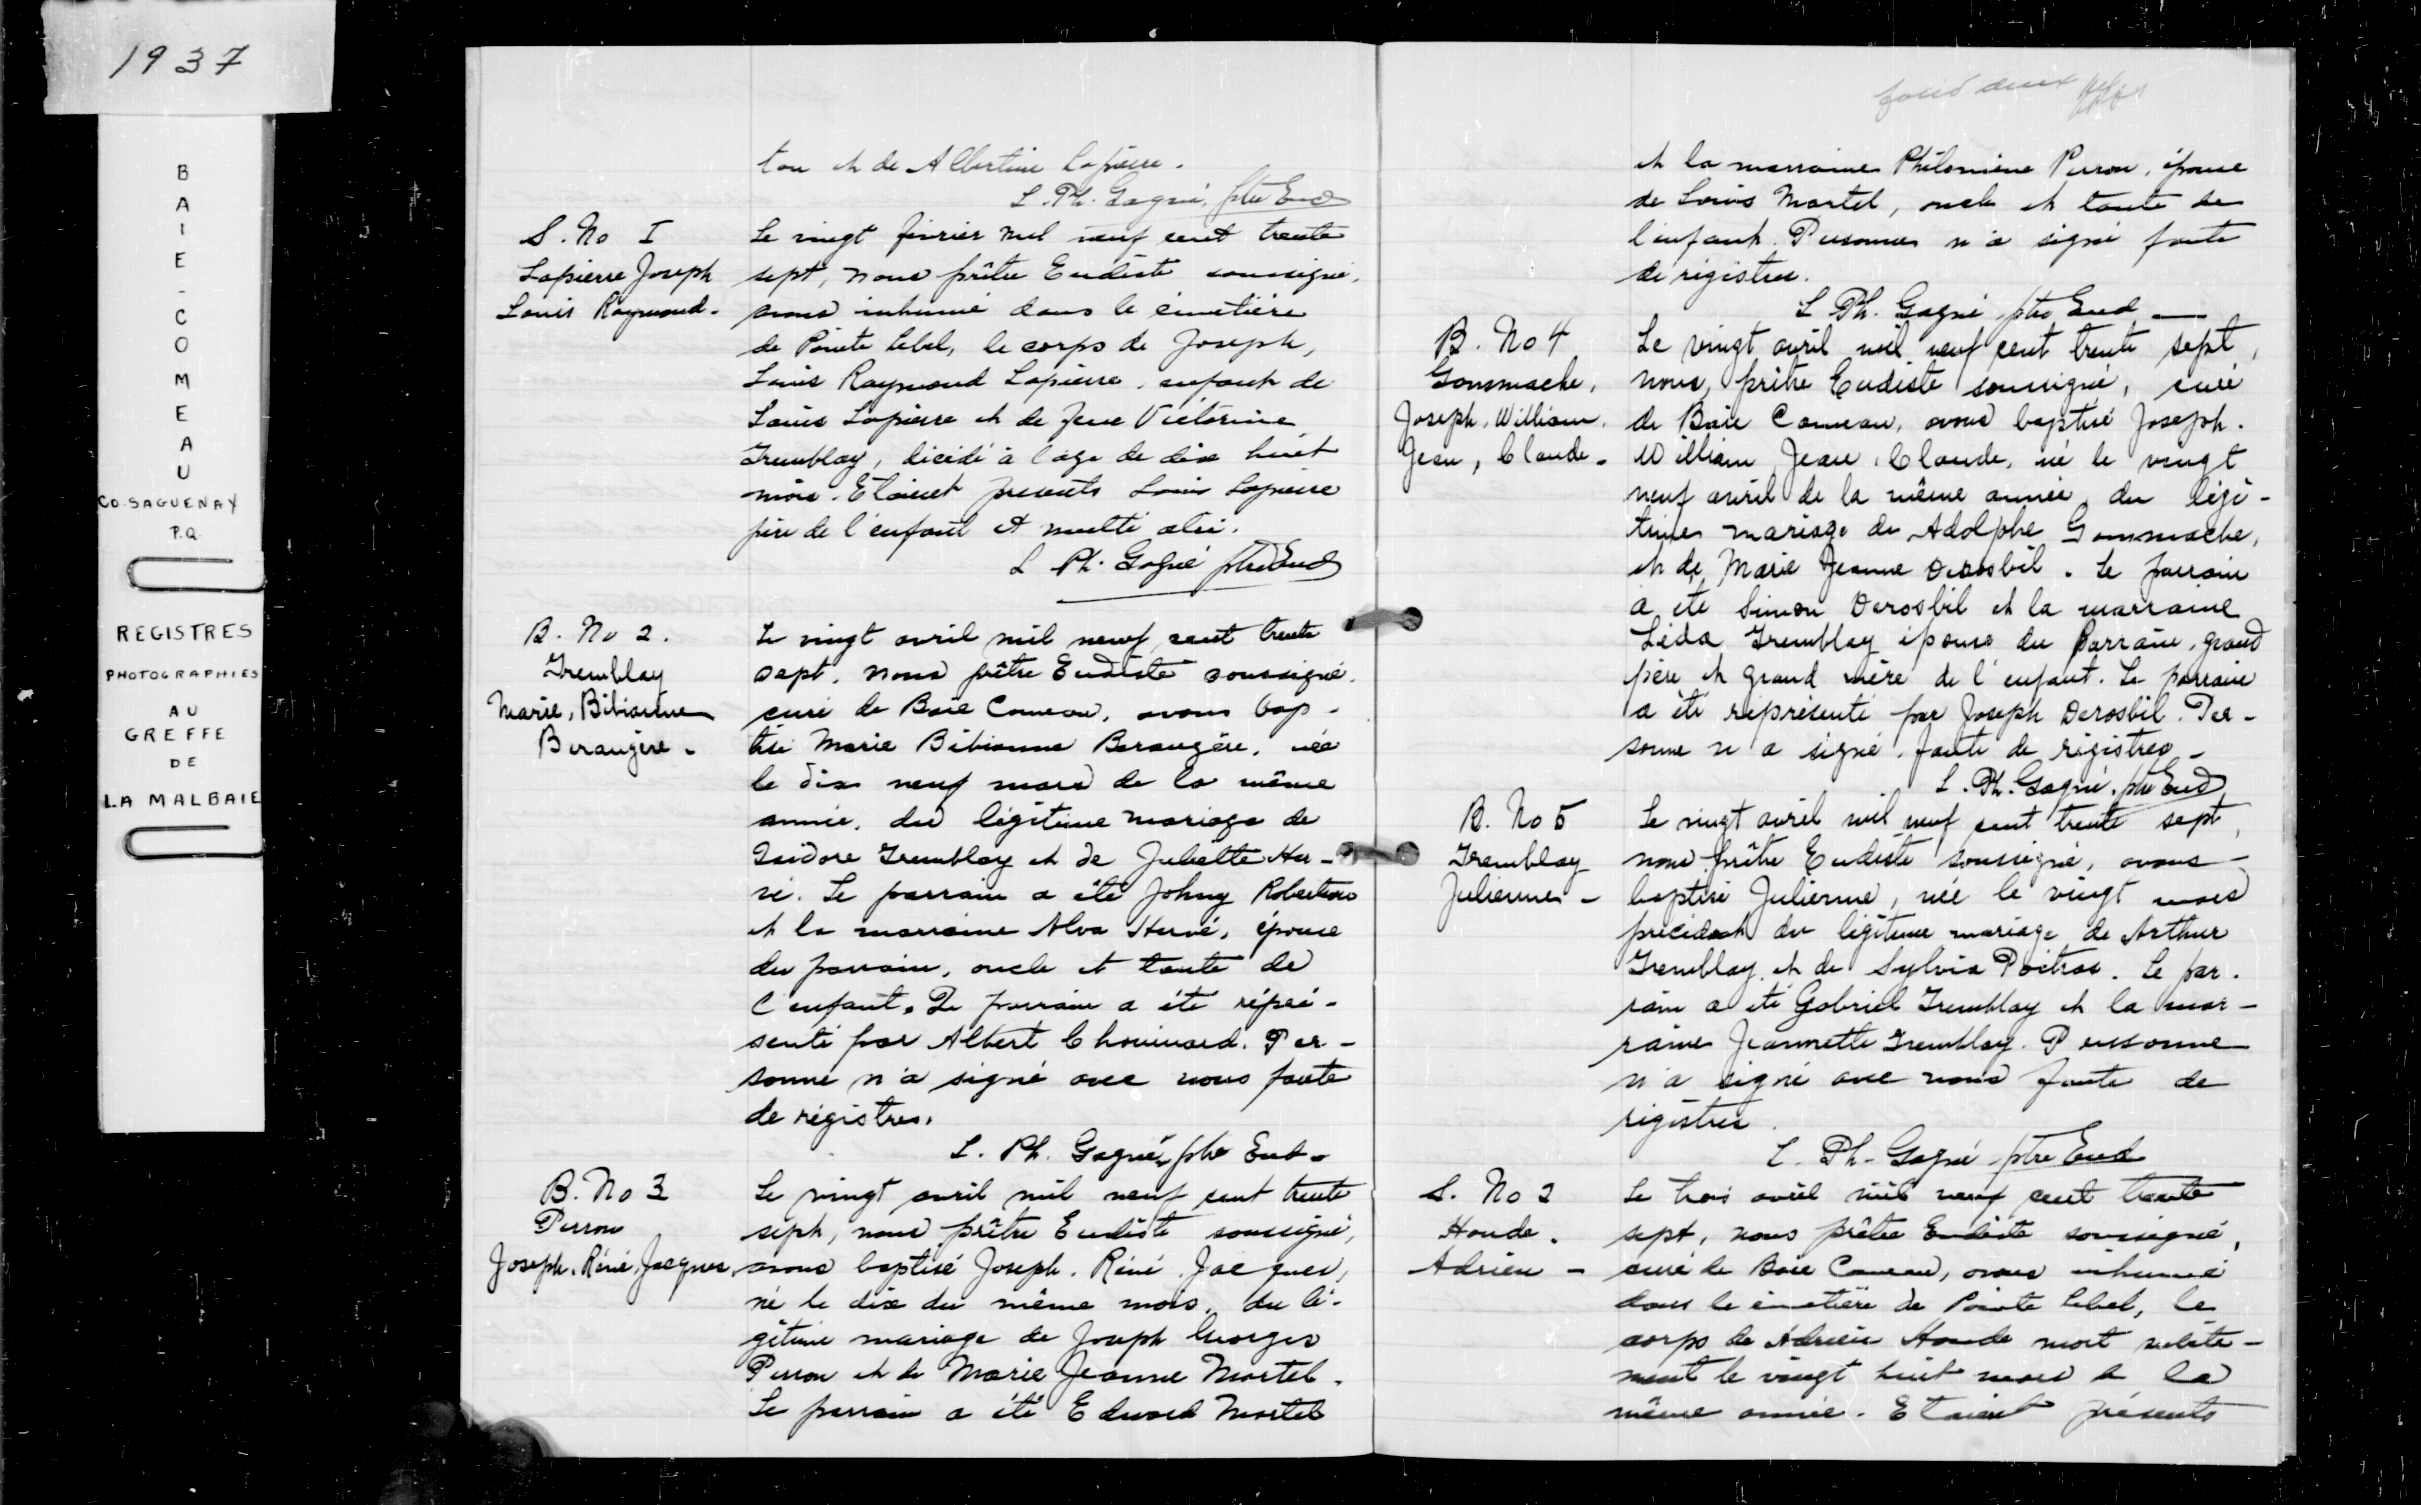 1937
BAIE-COMEAU
CO. SAGUENAY
P.Q.
REGISTRES
PHOTOGRAPHIES
AU
GREFFE
DE
LA MALBAIE
ton et de Albertine Lapierre.
L. Ph. Gagné, ptre Eud
S. No I
Lapierre Joseph
Louis Raymond.
Le vingt février mil neuf cent trente
sept, nous prêtre Eudiste soussigné,
avons inhumé dans le cimetière
de Pointe Lebel, le corps de Joseph,
Louis Raymond Lapierre, enfant de
Louis Lapierre et de feue Victorine
Tremblay, décédé à l'age de dix huit
mois. Etaient presents Louis Lapierre
père de l'enfant et multi alii.
L Ph. Gagné ptre Eud
B. No 2.
Tremblay
Marie, Bibianne
Berangère -
Le vingt avril mil neuf cent trente
sept, nous prêtre Eudiste soussigné,
curé de Baie Comeau, avons bap-
tisé Marie Bibianne Berangère, née
le dix neuf mars de la même
année, du légitime mariage de
Isidore Tremblay et de Juliette Her-
vé. Le parrain a été Johny Robertson
et la marraine Alva Hervé, épouse
du parrain, oncle et tante de
l'enfant. Le parrain a été répré-
senté par Albert Chouinard. Per-
sonne n'a signé avec nous faute
de régistres.
L. Ph. Gagné, ptre Eud.
B. No 3
Perron
Joseph, Réné, Jacques,
Le vingt avril mil neuf cent trente
sept, nous prêtre Eudiste soussigné,
avons baptisé Joseph. Réné. Jacques,
né le dix du même mois, du lé-
gitime mariage de Joseph Georges
Perron et de Marie Jeanne Martel.
Le parrain a été Edward Martel
et la marraine Philomène Perron, épouse
de Louis Martel, oncle et tante de
l'enfant. Personne n'a signé faute
de régistres.
L Ph. Gagné ptre Eud
B. No 4
Gommache,
Joseph, William,
Jean, Claude.
Le vingt avril mil neuf cent trente sept,
nous, prêtre Eudiste soussigné, curé
de Baie Comeau, avons baptisé Joseph.
William, Jean, Claude, né le vingt
neuf avril de la même année, du légi-
time mariage de Adolphe Gommache,
et de Marie Jeanne Derosbil. Le parrain
a été Simon Derosbil et la marraine
Léda Tremblay épouse du parrain, grand
père et grand mère de l'enfant. Le parrain
a été réprésenté par Joseph Derosbil. Per-
sonne n'a signé, faute de régistres -
L. Ph. Gagné, ptre Eud
B. No 5
Tremblay
Julienne -
Le vingt avril mil neuf cent trente sept,
nous prêtre Eudiste soussigné, avons
baptisé Julienne, née le vingt mars
précédent du légitime mariage de Arthur
Tremblay et de Sylvia Poitras. Le par-
rain a été Gabriel Tremblay et la mar-
raine Jeannette Tremblay. Personne
n'a signé avec nous faute de
régistres.
L. Ph. Gagné ptre Eud
S. No 2
Houde.
Adrien -
Le trois avril mil neuf cent trente
sept, nous prêtre Eudiste soussigné,
curé de Baie Comeau, avons inhumé
dans le cimetière de Pointe Lebel, le
corps de Adrien Houde mort subite-
ment le vingt huit mars de la
même année. Etaient présents